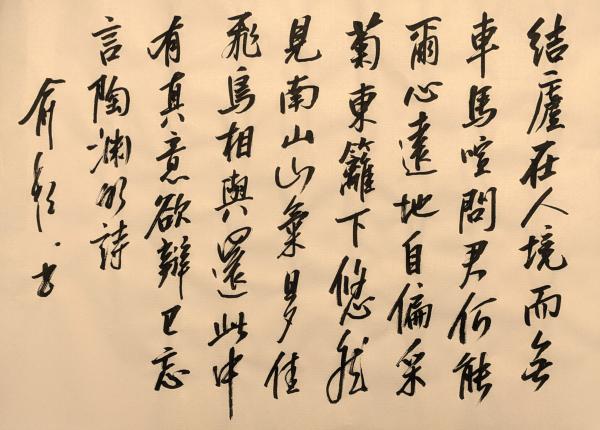 結廬在人境而無
車馬喧問君何能
爾心遠地自偏采
菊東籬下悠然
見南山山氣日夕佳
飛鳥相與還此中
有真意欲辨已忘
言陶淵明詩
俞 书